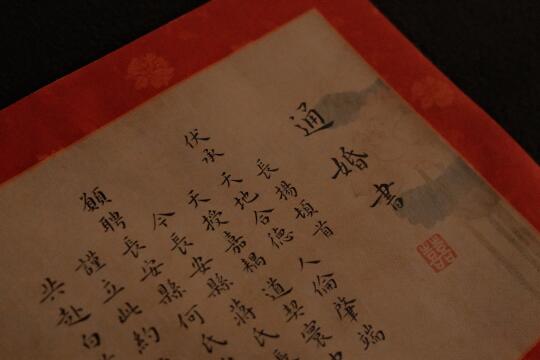 通婚書
長揚頓首
伏承 天地合德 人倫肇端
天授嘉耦 道契寰中
今長安縣蔣氏長
願聘長安縣何氏
謹立此約
共赴白
囍